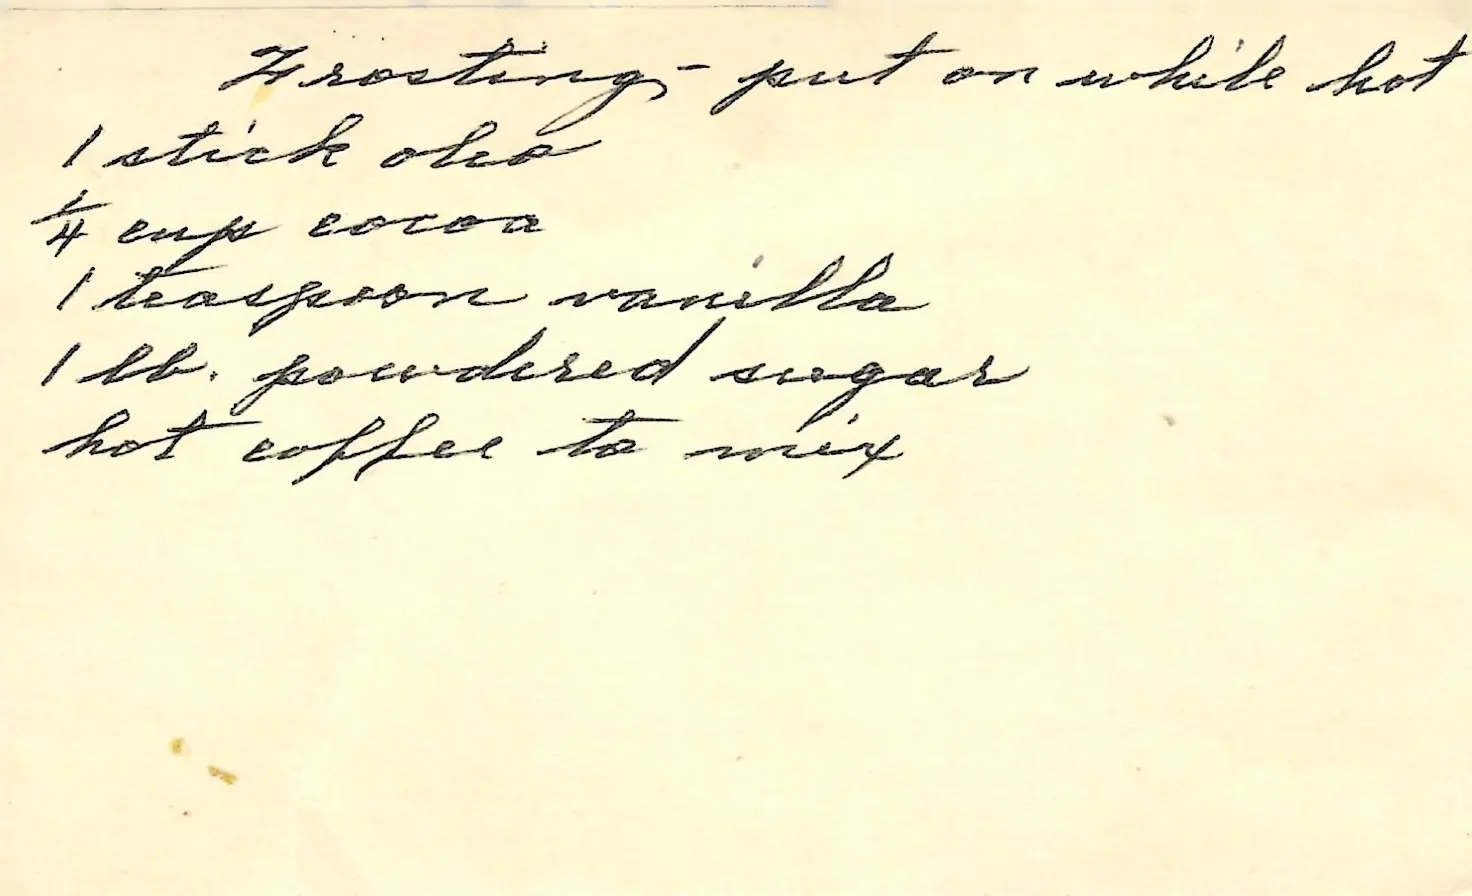 Frosting - put on while hot
1 stick oleo
1/4 cup cocoa
1 teaspoon vanilla
1 lb. powdered sugar
hot coffee to mix